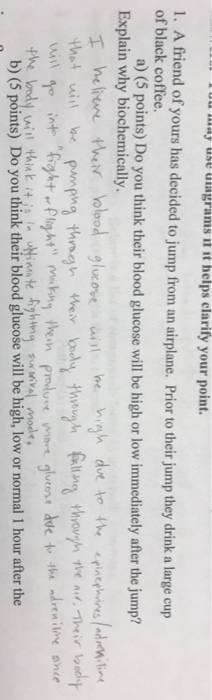 may use diagrams if it helps clarify your point.
1. A friend of yours has decided to jump from an airplane. Prior to their jump they drink a large cup
of black coffee.
a) (5 points) Do you think their blood glucose will be high or low immediately after the jump?
Explain why biochemically.
I believe their blood glucose will be high due to the epinephrines/adreniline
that will be pumping through their body through falling through the air. Their body
will go into "fight or flight" making them produce more glucose due to the adreniline since
the body will think it is in ultimate fighting survival mode.
b) (5 points) Do you think their blood glucose will be high, low or normal 1 hour after the